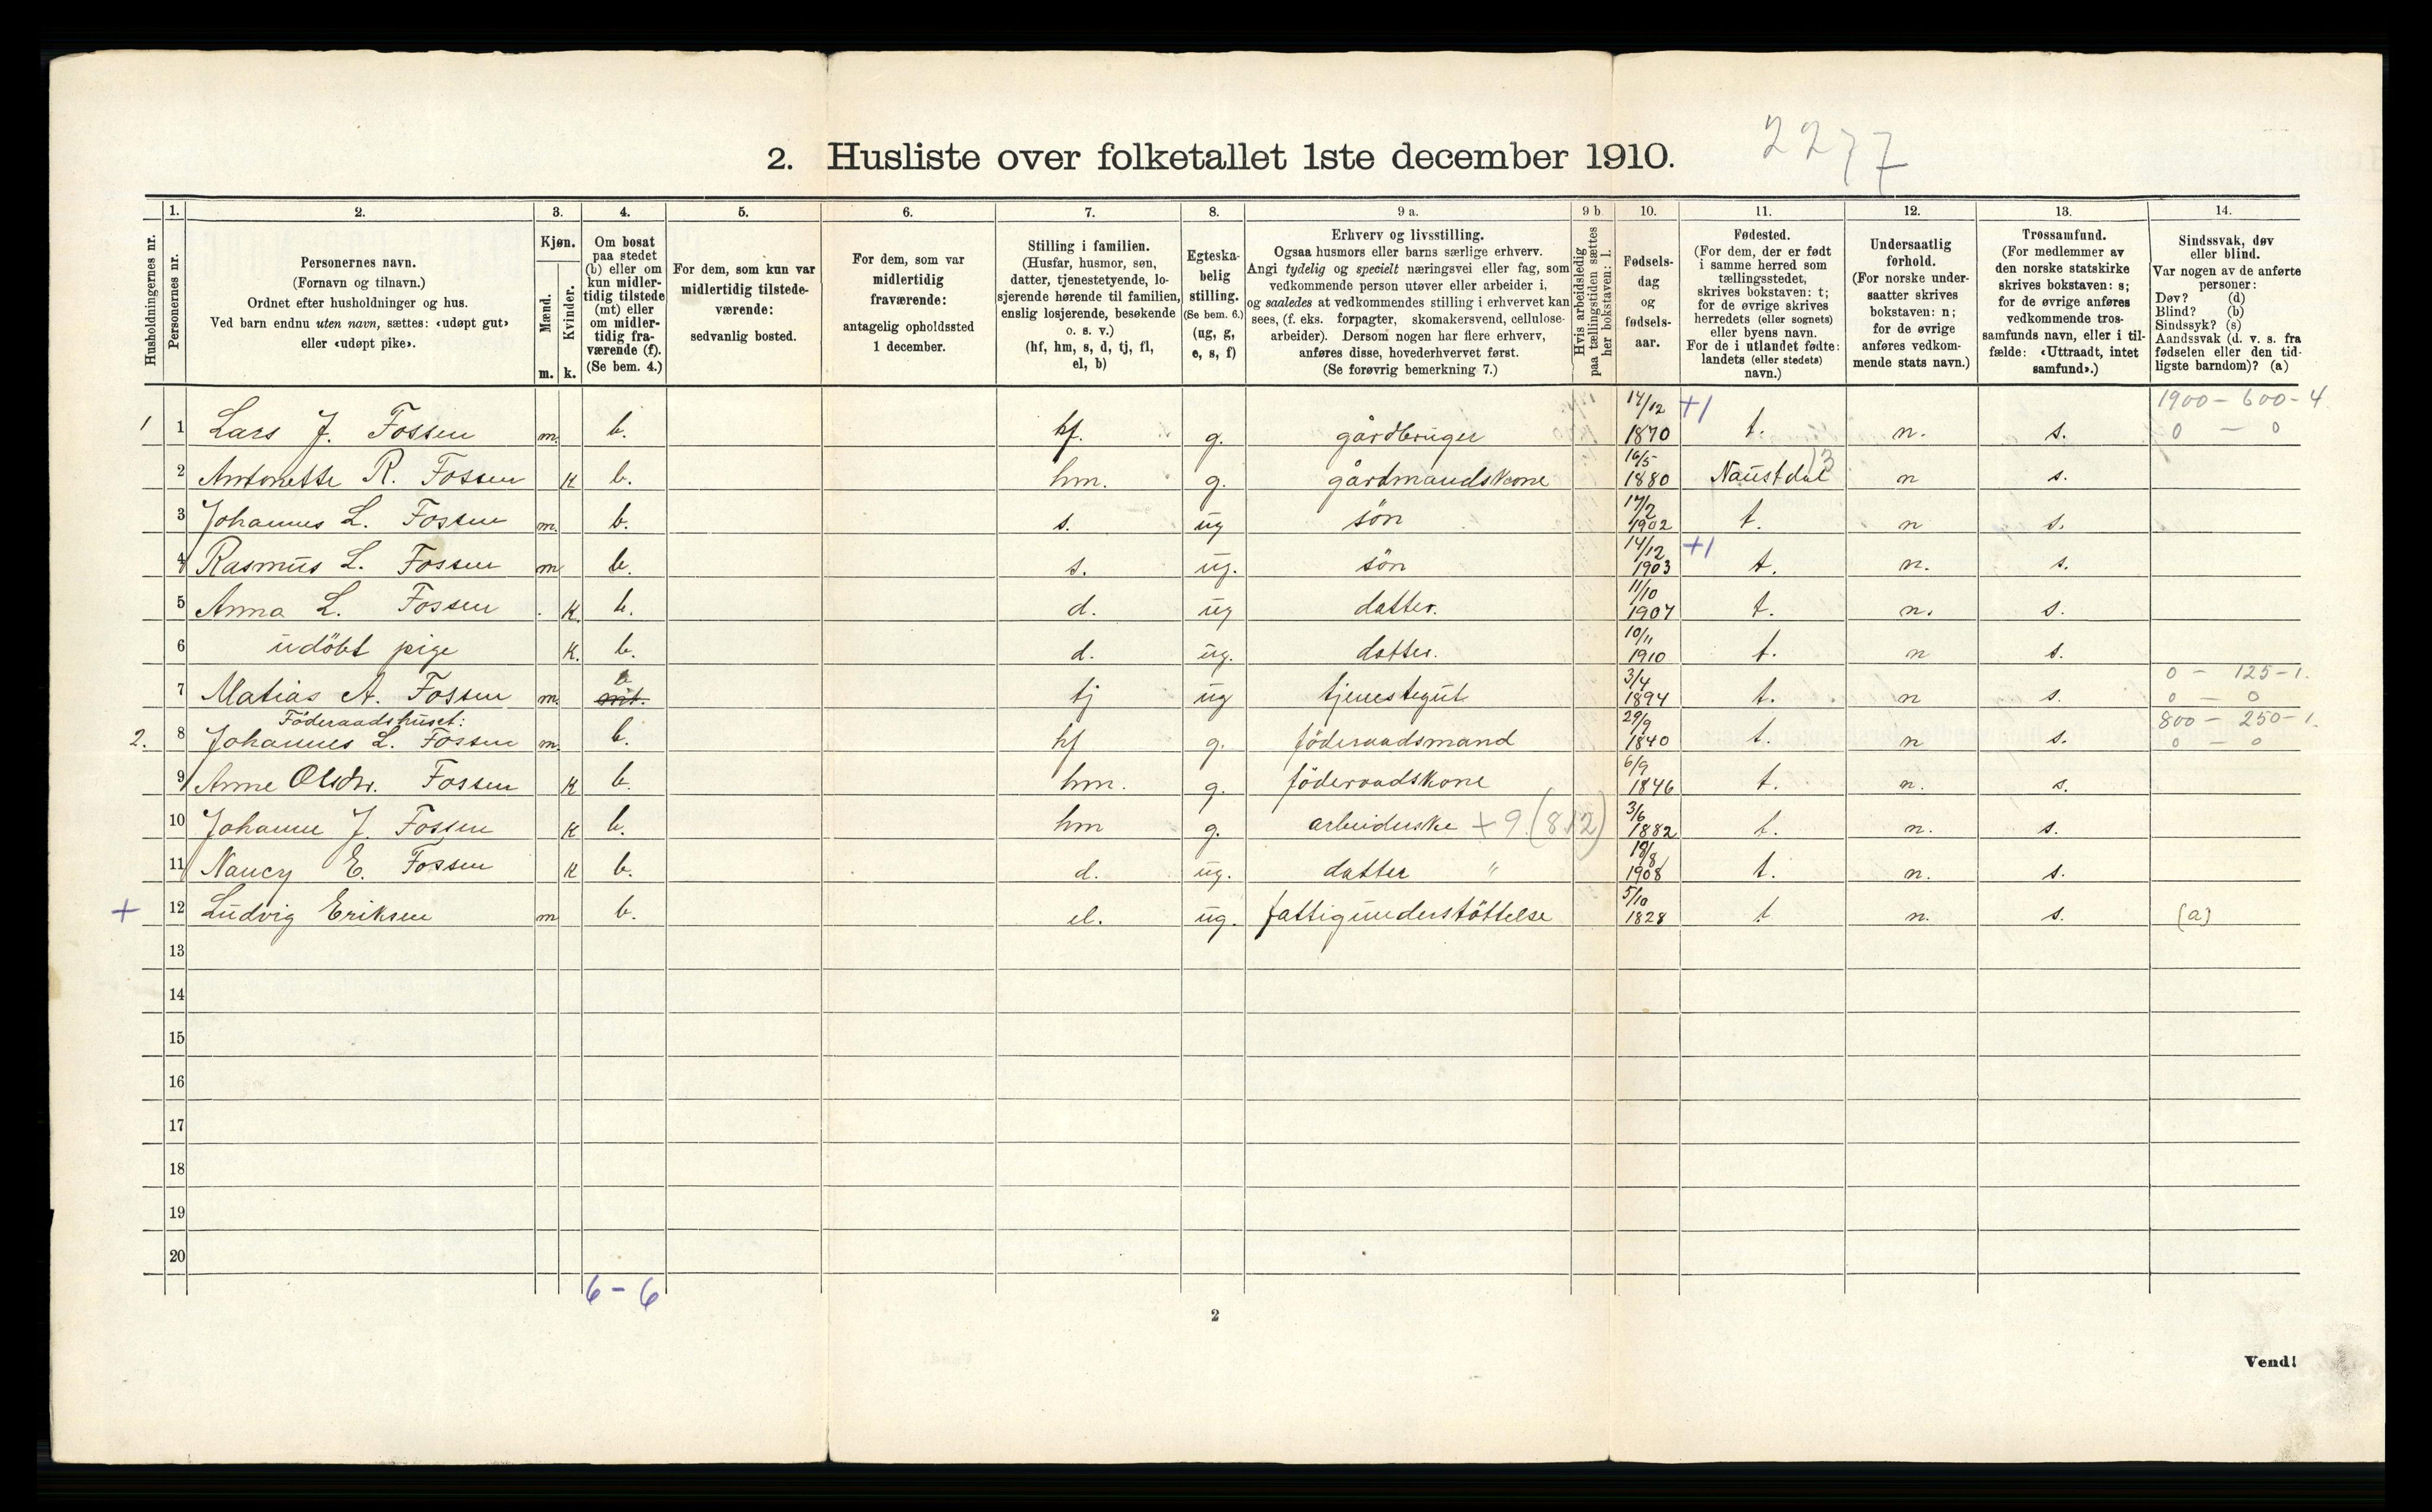 2. Husliste over folketallet 1ste december 1910.
2277
1. 2. 3. 4. 5. 6. 7. 8. 9 a. 9 b 10. 11. 12. 13. 14.
Husholdningernes nr.
Personernes nr.
Personernes navn.
(Fornavn og tilnavn.)
Ordnet efter husholdninger og hus.
Ved barn endnu uten navn, sættes: «udøpt gut»
eller «udøpt pike».
Kjøn.
Mænd.
Kvinder.
m. k.
Om bosat
paa stedet
(b) eller om
kun midler-
tidig tilstede
(mt) eller
om midler-
tidig fra-
værende (f).
(Se bem. 4.)
For dem, som kun var
midlertidig tilstede-
værende:
sedvanlig bosted.
For dem, som var
midlertidig
fraværende:
antagelig opholdssted
1 december.
Stilling i familien.
(Husfar, husmor, søn,
datter, tjenestetyende, lo-
sjerende hørende til familien,
enslig losjerende, besøkende
o. s. v.)
(hf, hm, s, d, tj, fl,
el, b)
Egteska-
belig
stilling.
(Se bem. 6.)
(ug, g,
e, s, f)
Erhverv og livsstilling.
Ogsaa husmors eller barns særlige erhverv.
Angi tydelig og specielt næringsvei eller fag, som
vedkommende person utøver eller arbeider i,
og saaledes at vedkommendes stilling i erhvervet kan
sees, (f. eks. forpagter, skomakersvend, cellulose-
arbeider). Dersom nogen har flere erhverv,
anføres disse, hovederhvervet først.
(Se forøvrig bemerkning 7.)
Hvis arbeidsledig
paa tællingstiden sættes
her bokstaven: l.
Fødsels-
dag
og
fødsels-
aar.
Fødested.
(For dem, der er født
i samme herred som
tællingsstedet,
skrives bokstaven: t;
for de øvrige skrives
herredets (eller sognets)
eller byens navn.
For de i utlandet fødte:
landets (eller stedets)
navn.)
Undersaatlig
forhold.
(For norske under-
saatter skrives
bokstaven: n;
for de øvrige
anføres vedkom-
mende stats navn.)
Trossamfund.
(For medlemmer av
den norske statskirke
skrives bokstaven: s;
for de øvrige anføres
vedkommende tros-
samfunds navn, eller i til-
fælde: «Uttraadt, intet
samfund».)
Sindssvak, døv
eller blind.
Var nogen av de anførte
personer:
Døv? (d)
Blind? (b)
Sindssyk? (s)
Aandssvak (d. v. s. fra
fødselen eller den tid-
ligste barndom)? (a)
1900 - 600 - 4
1 1 Lars J. Fossen m. b. hf. g. gårdbruger 14/12 1870 +1 t. n. s. 0 - 0
2 Antonette R. Fossen k b. hm. g. gårdmandskone 16/5 1880 Naustdal 13 n s.
3 Johannes L. Fossen m. b. s. ug søn 17/2 1902 t. n s.
4 Rasmus L. Fossen m b. s. ug. søn 14/12 1903 +1 t. n. s.
5 Anna L. Fossen k. b. d. ug datter. 11/10 1907 t. n. s.
6 udöbt pige k. b. d. ug. datter. 10/11 1910 t. n s.
0 - 125 - 1.
7 Matias A. Fossen m. b mt. tj ug tjenestegut 3/4 1894 t. n s. 0 - 0
Föderaadshuset:
800 - 250 - 1.
2. 8 Johannes L. Fossen m. b. hf g. föderaadsmand 29/9 1840 t. n s. 0 - 0
9 Anne Olsdr. Fossen k b. hm. g. föderaadskone 6/9 1846 t. n. s.
10 Johanne J. Fossen k b. hm g. arbeiderske + 9 (8.12) 3/6 1882 t. n. s.
11 Nancy E. Fossen k b. d. ug. datter " 18/8 1908 t. n. s.
+ 12 Ludvig Eriksen m b. el. ug. fattigunderstöttelse 5/10 1828 t n. s. (a)
13
14
15
16
17
18
19
20
6 - 6
2
Vend!